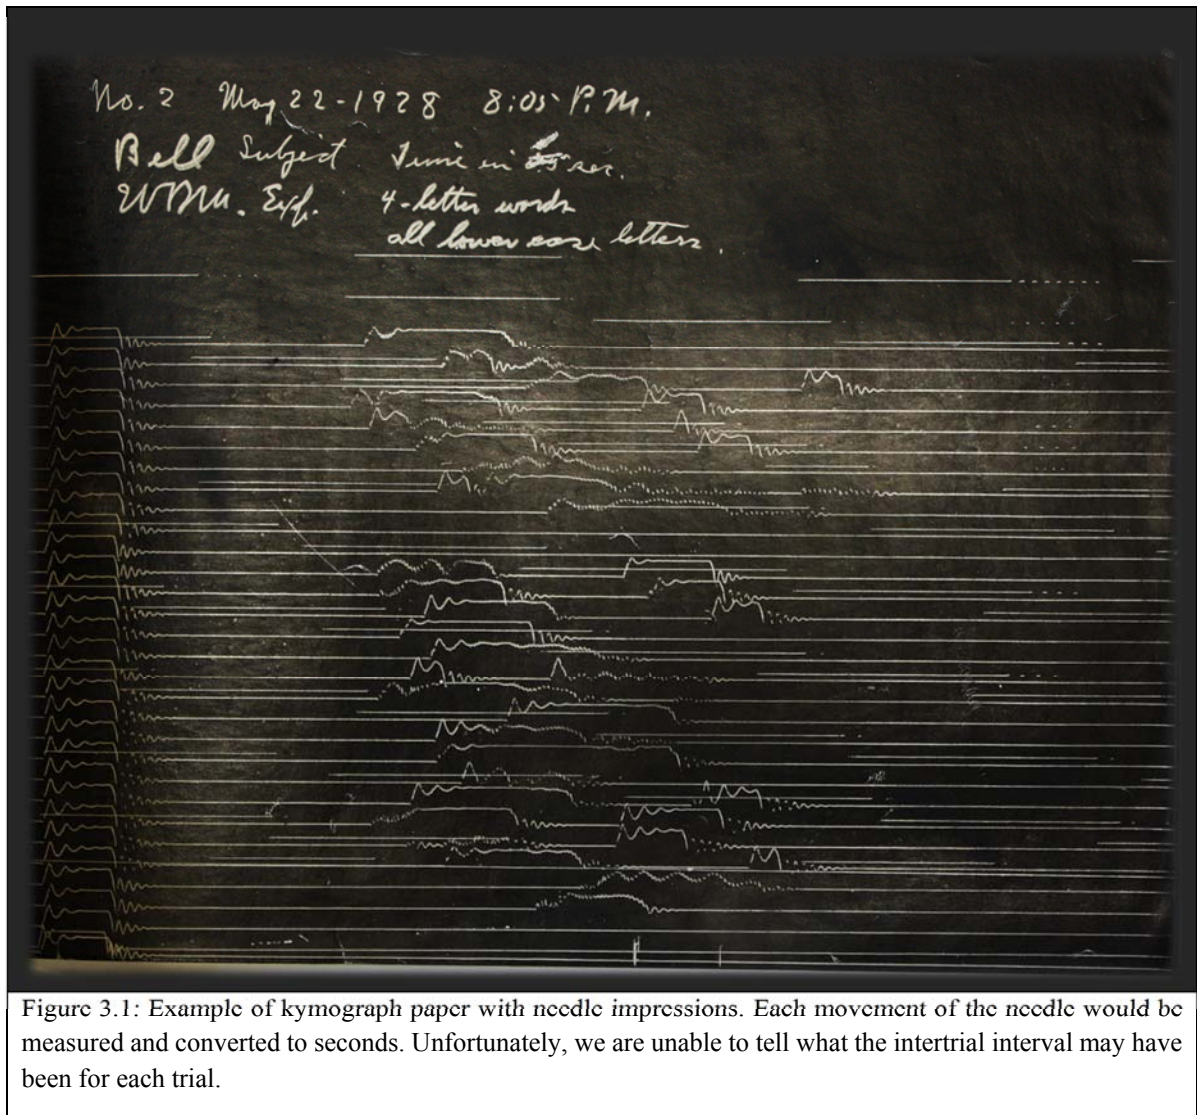 No. 2 May 22-1928 8:05 P.M.
Bell Subject. Time in sec.
W.D.M. Exp. 4-letter words
all lower case letters.
Figure 3.1: Example of kymograph paper with needle impressions. Each movement of the needle would be
measured and converted to seconds. Unfortunately, we are unable to tell what the intertrial interval may have
been for each trial.